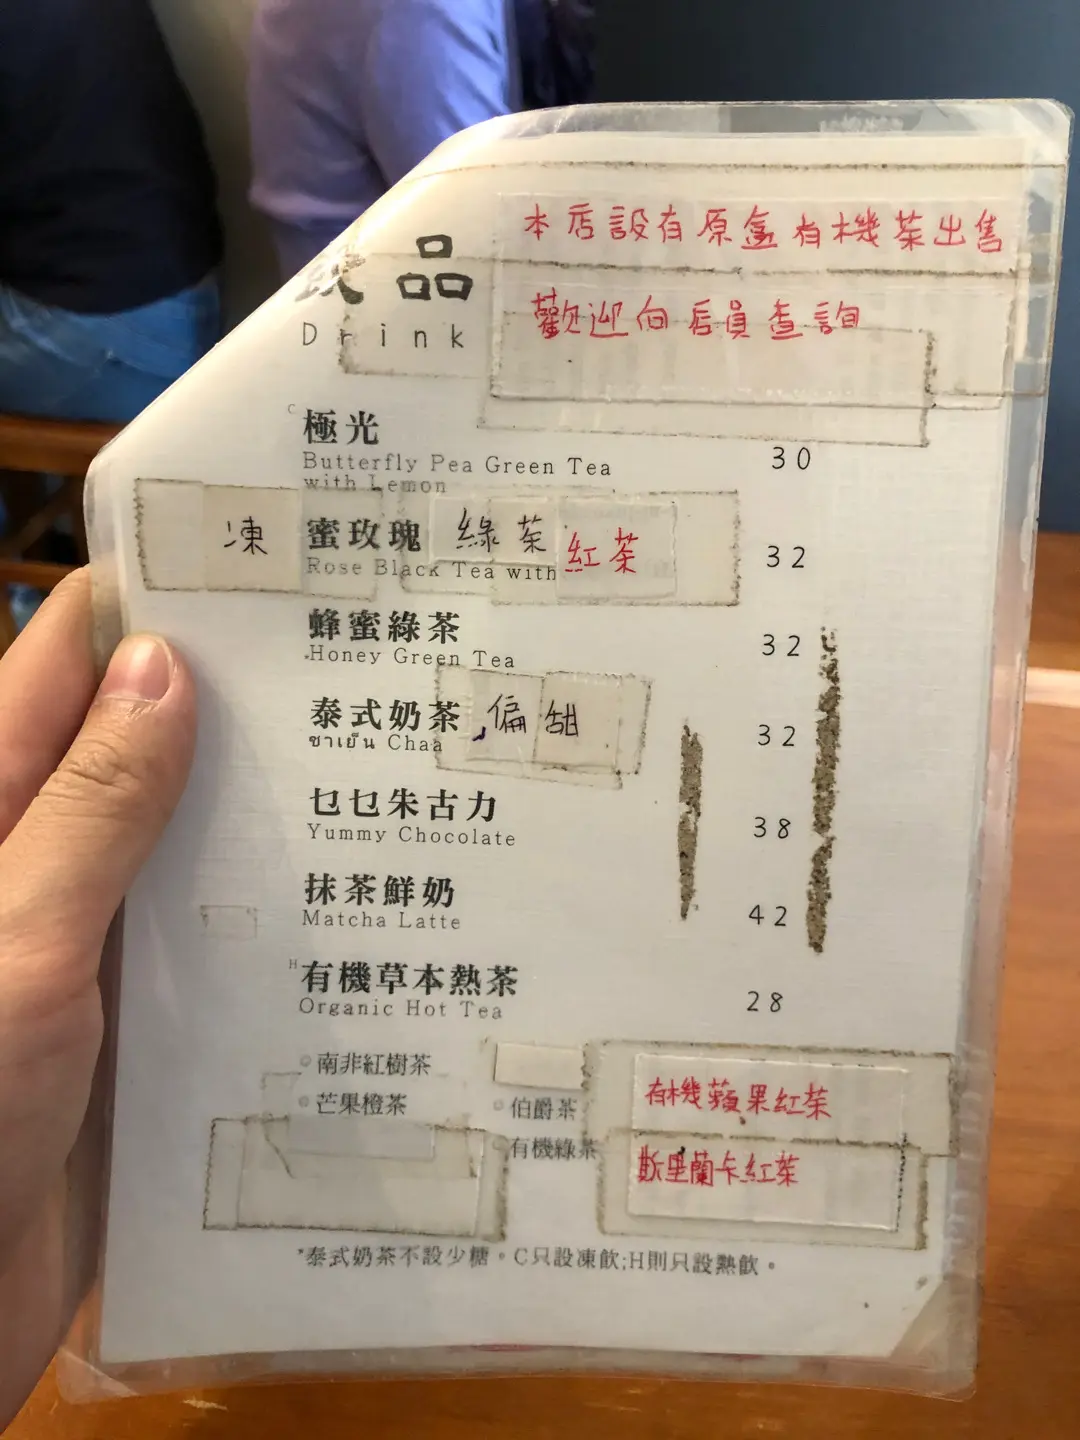 本店設有原盒有機茶出售
歡迎向店員查詢
品
Drink
C 極光 30
Butterfly Pea Green Tea
with Lemon
凍 蜜玫瑰 綠茶 紅茶 32
Rose Black Tea with
蜂蜜綠茶 32
Honey Green Tea
泰式奶茶 偏甜 32
ชาเย็น Chaa
乜乜朱古力 38
Yummy Chocolate
抹茶鮮奶 42
Matcha Latte
H 有機草本熱茶 28
Organic Hot Tea
南非紅樹茶
芒果橙茶
伯爵茶
有機綠茶
有機蘋果紅茶
斯里蘭卡紅茶
*泰式奶茶不設少糖。C只設凍飲;H則只設熱飲。